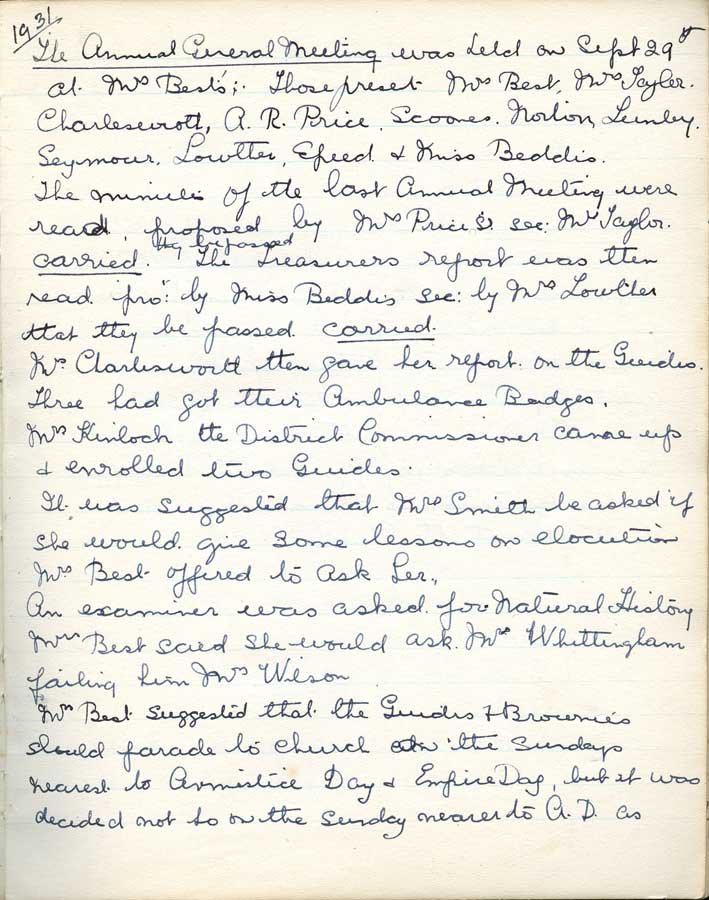 1931
The Annual General Meeting was held on Sept 29th
at Mrs Best's;. Those present Mrs Best, Mrs Tayler.
Charlesworth, A. R. Price, Scoones. Norton, Lumby,
Seymour, Lowther, & Miss Beddis.
The minutes of the last Annual Meeting were
read, proposed by Mrs Price & sec: Mrs Taylor.
be passed
carried. The Treasurers report was then
read. pro: by Miss Beddis sec: by Mrs Lowther
that they be passed. carried.
Mrs Charlesworth then gave her report. on the Guides.
Three had got their Ambulance Badges.
Mrs Kinloch the District Commissioner came up
& enrolled two Guides.
It was suggested that Mrs Smith be asked if
she would give some lessons on elocution
Mrs Best offered to ask her.,
An examiner was asked for Natural History
Mrs Best said she would ask. Mr Whittingham
failing him Mrs Wilson
Mrs Best suggested that the Guides & Brownies
should parade to church on the Sundays
nearest to Armistice Day & Empire Day, but it was
decided not to on the Sunday nearer to A.D. as